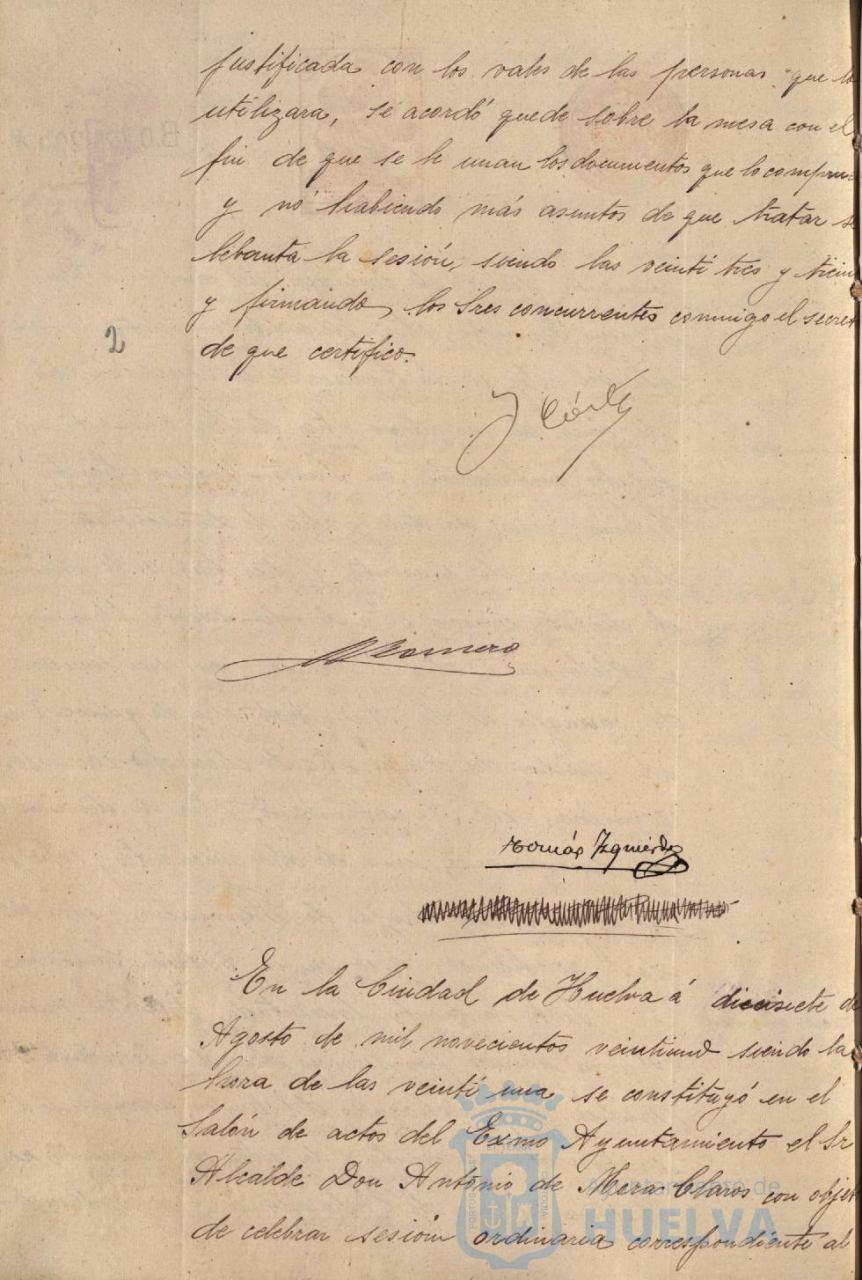 justificada con los vales de las personas que lo
utilizara, se acordó quede sobre la mesa con el
fin de que se le unan los documentos que lo comprue
y nó habiendo más asuntos de que tratar se
lebanta la sesión, siendo las veinti tres y trein
y firmando, los Sres concurrentes conmigo el secret
de que certifico.
2
Romero
Tomás Izquierdo
En la Ciudad de Huelva á diecisiete de
Agosto de mil novecientos veintiuno siendo la
hora de las veinti una se constituyó en el
Salón de actos del Exmo Ayuntamiento el Sr
Alcalde Don Antonio de Mora Claros con objet
de celebrar sesión ordinaria correspondiente al
Ayuntamiento de
HUELVA